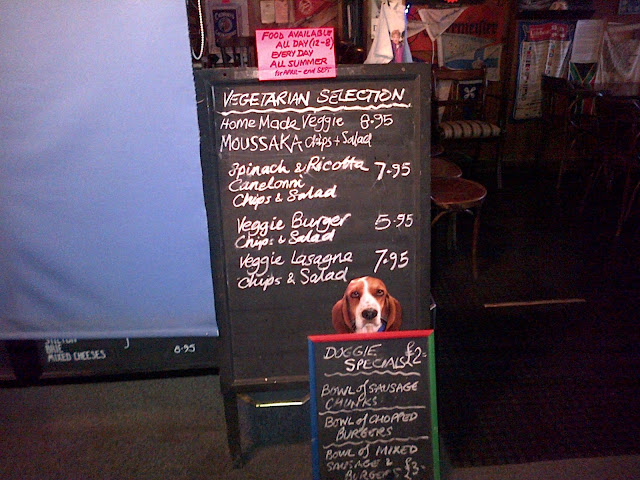 FOOD AVAILABLE
ALL DAY (12-8)
EVERY DAY
ALL SUMMER
VEGETARIAN SELECTION
Home Made Veggie 8.95
MOUSSAKA Chips + Salad
Spinach & Ricotta 7.95
Canelonni
Chips & Salad
Veggie Burger 5.95
Chips & Salad
Veggie Lasagne 7.95
Chips & Salad
MIXED CHEESES 8.95
DOGGIE
SPECIALS £2-
BOWL of SAUSAGE
CHUNKS
BOWL of CHOPPED
BURGERS
BOWL OF MIXED
SAUSAGE &
BURGERS £3-